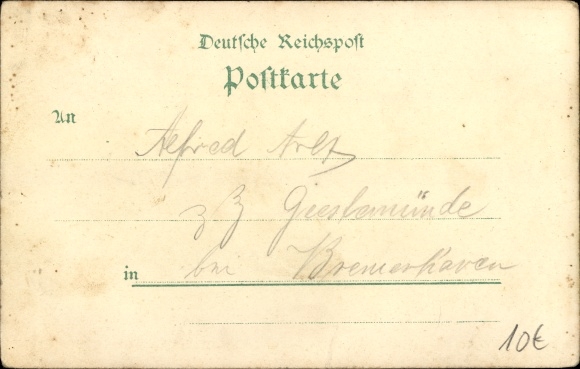 Deutsche Reichspost
Postkarte
An
Alfred Arlt
z Z Geestemünde
in bei Bremerhaven
10€